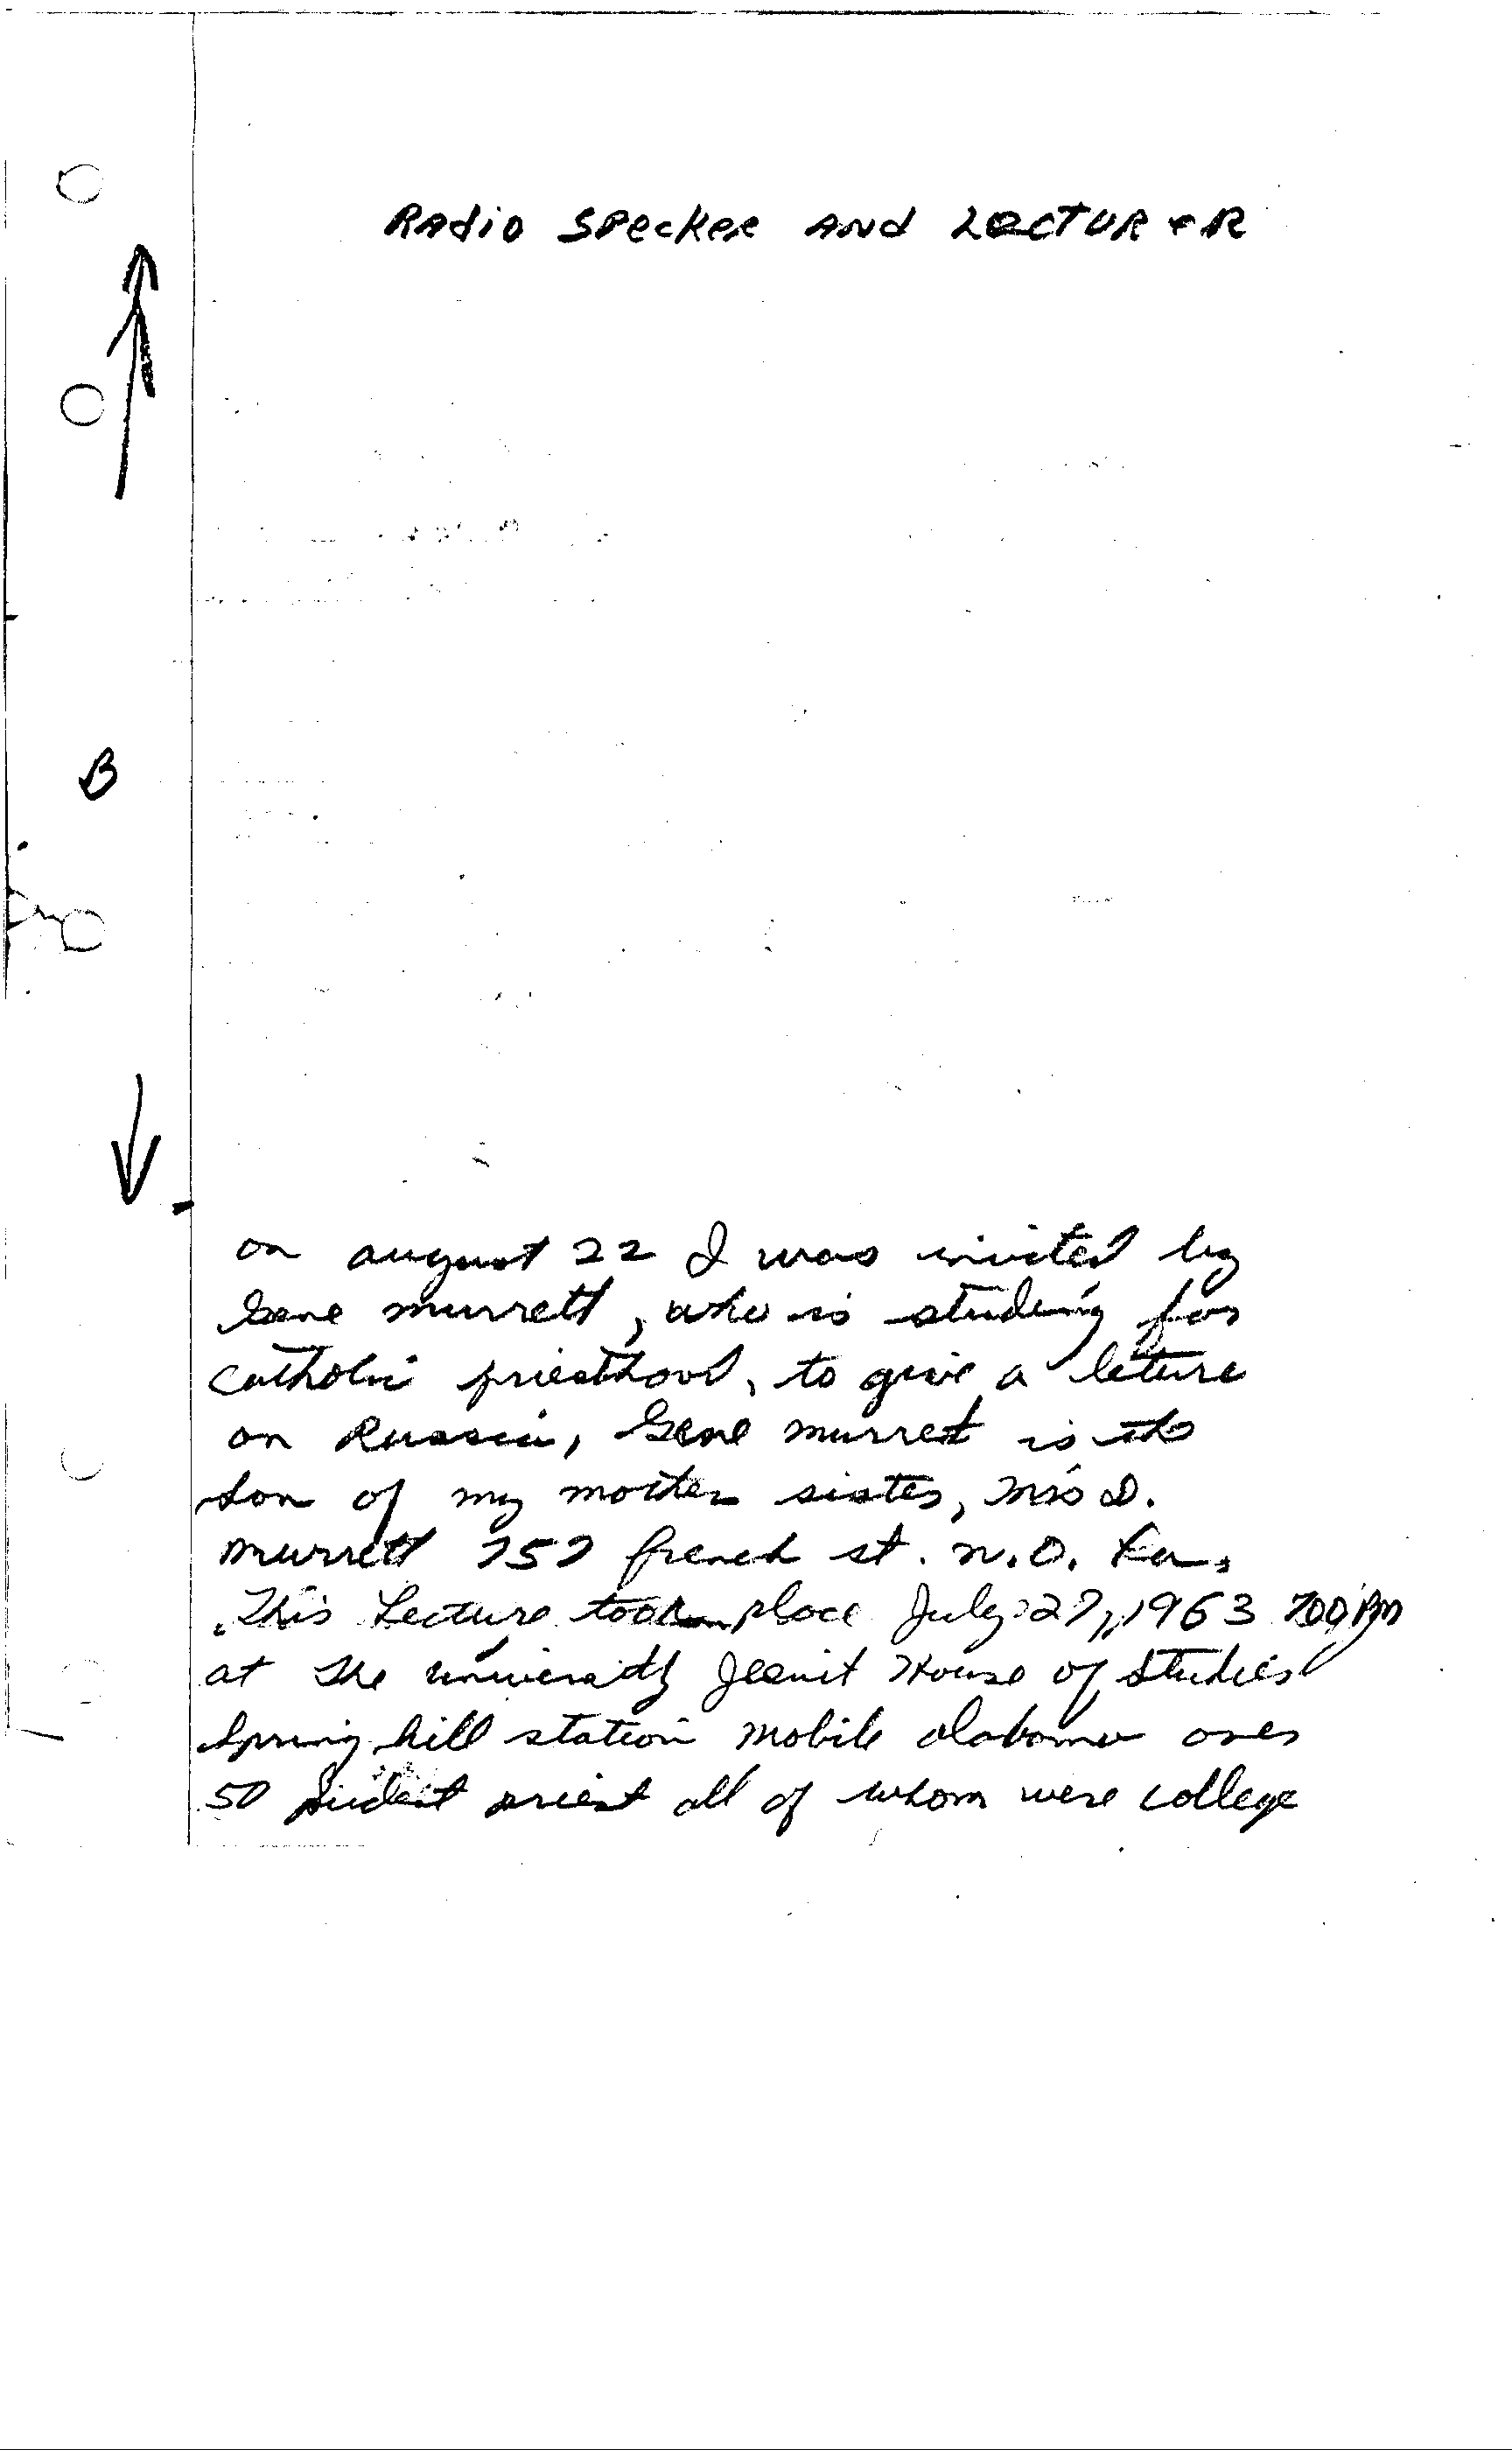 RAdio SPeckeR ANd LecTUReR
B
on august 22 I was invited by
Gene murrett, who is studing for
catholic priesthood, to give a leture
on Russia, Gene murret is the
son of my mother sister, Mrs D.
murrett 757 french st. n.O. La.
This Lecture took place July 27, 1963 700 PM
at the university Jesuit House of Studies
Spring hill station mobile alabama over
50 priest all of whom were college